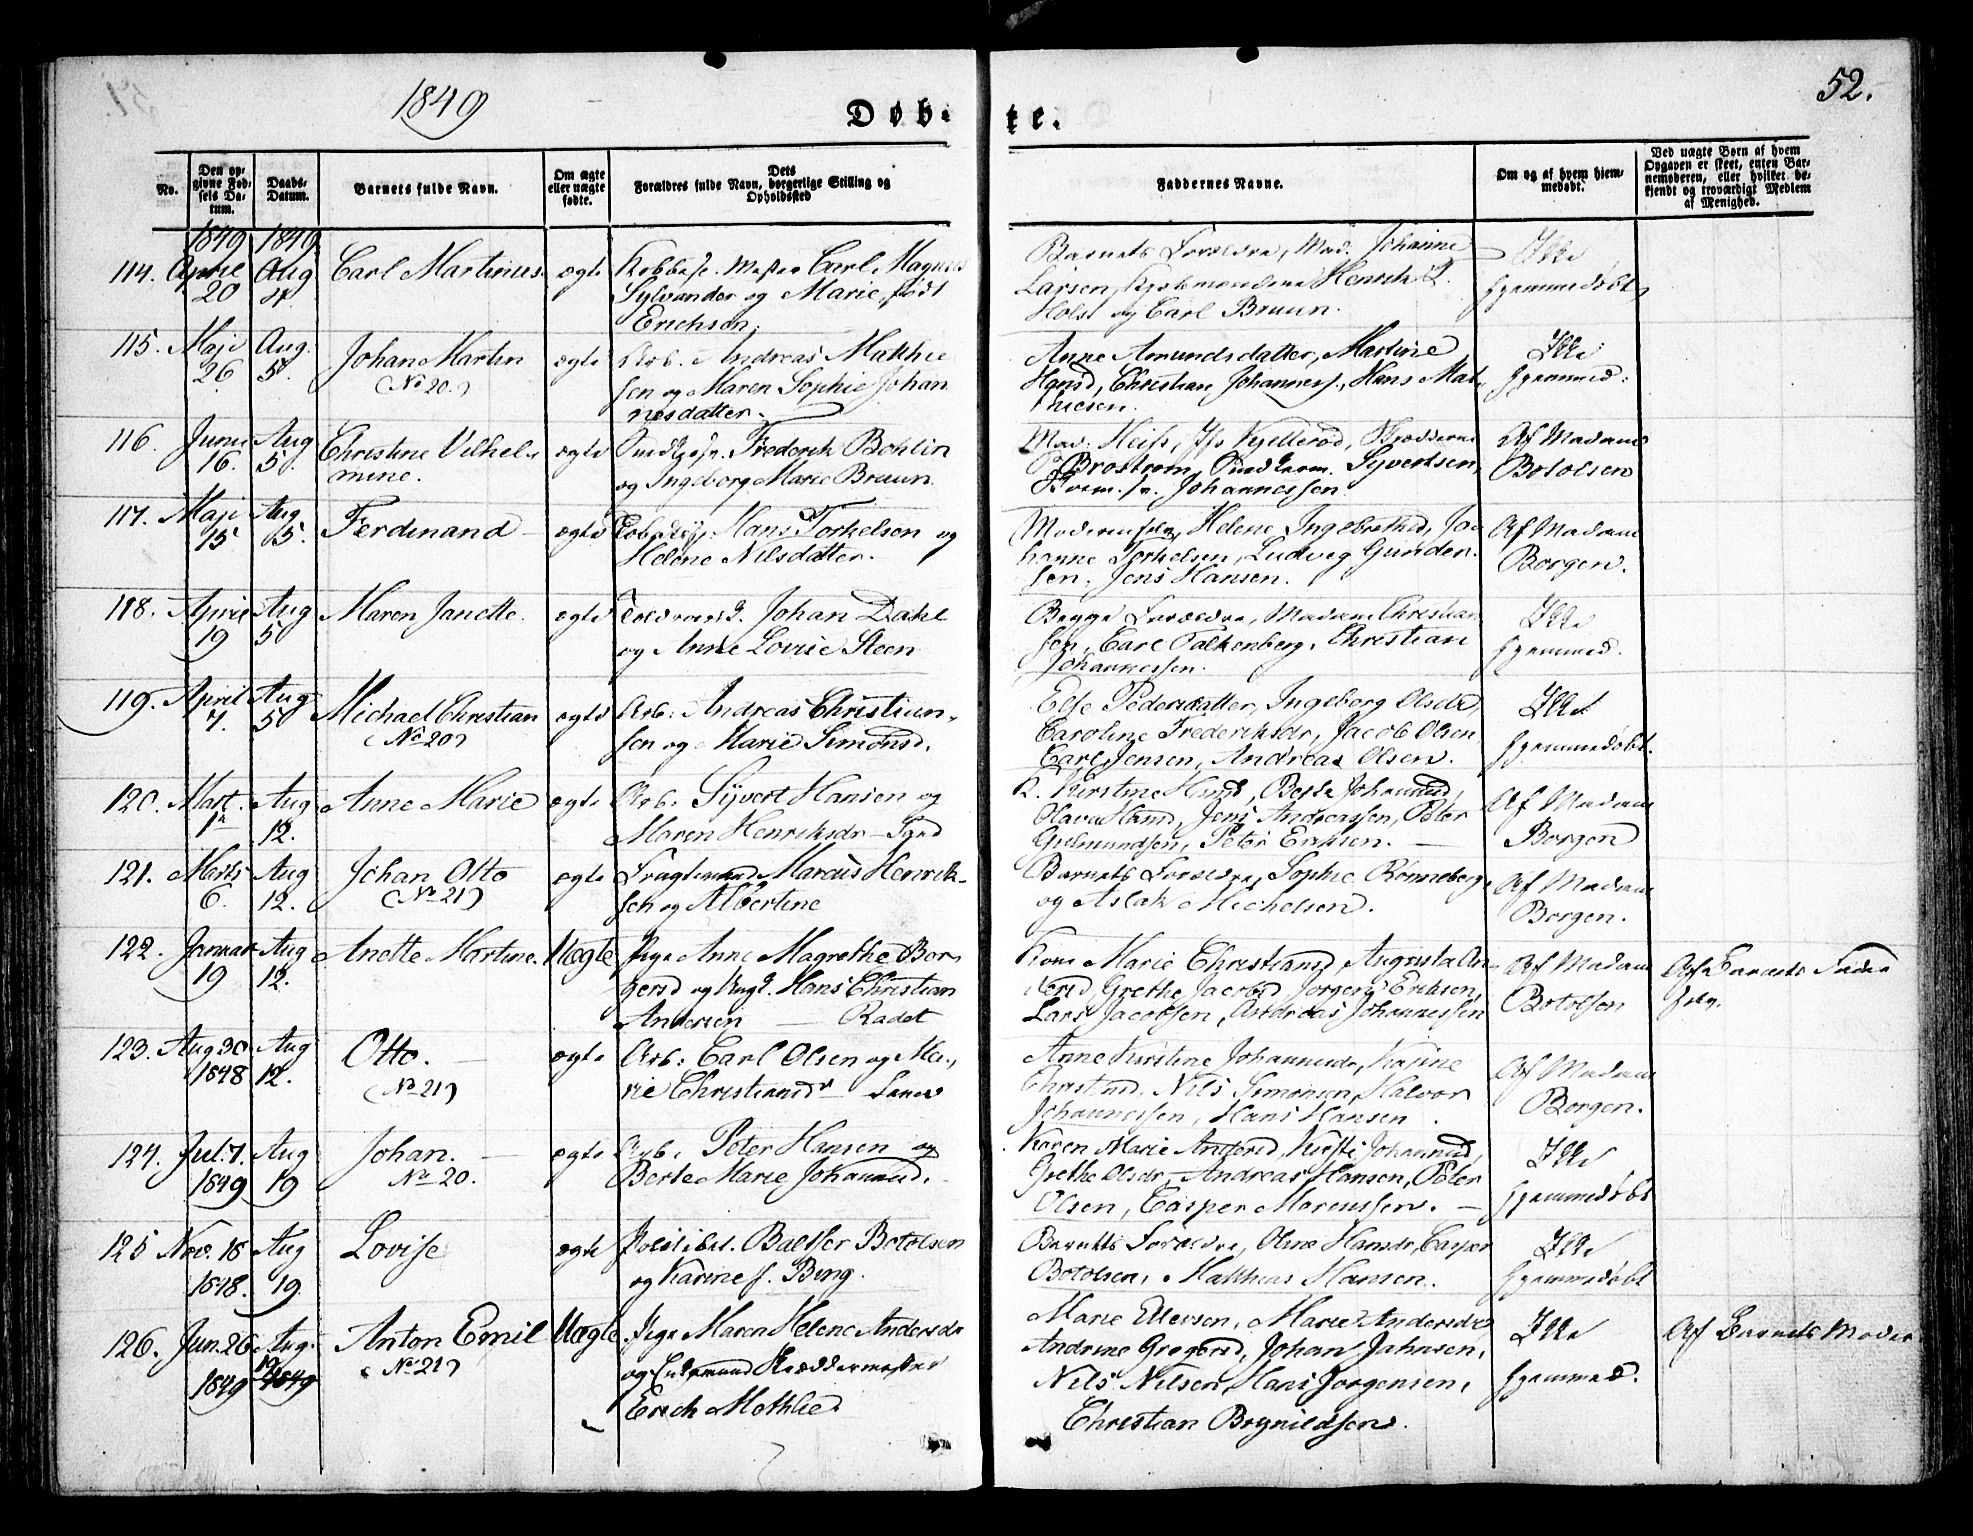 1849
52.
Døb-
te.
No.
Den op-
givne Fød-
sels Da-
tum.
Daabs-
Datum.
Barnets fulde Navn.
Om ægte
eller uægte
fødte.
Dets
Forældres fulde Navn, borgerlige Stilling og
Opholdssted
Faddernes Navne.
Om og af hvem hjem-
medøbt.
Ved uægte Børn af hvem
Opgaven er skeet, enten Bar-
nemoderen, eller hvilket be-
kjendt og troværdigt Medlem
af Menighed.
1849 1849
114. April 20 Aug 4. Carl Martinus. ægte Mester Carl Magnus
Sylvander og Marie, født
Erichson.
Barnets Forældre, Mad. Johanne
Larsen, Henrik L.
Holst og Carl Bruun.
Ikke
hjemmedøbt
115. Maji 26 Aug. 5. Johan Martin
(No 20.)
ægte Arb. Andreas Mathie
sen og Maren Sophie Johan
nesdatter.
Anne Amundsdatter, Martine
Hansd, Christian Johanness., Hans Mat-
thiesen.
Ikke
hjemmed:
116. Junii 16. Aug 5. Christine Vilhel-
mine.
ægte Frederik Bohlin
og Ingeborg Marie Bruun.
Mad. Heiss, Jfr Kjellerød,
Brostrøm, Syvertsen,
Johannessen.
Af Madam
Botolsen
117. Maji 15 Aug. 5. Ferdinand ægte Hans Torkelsen og
Helene Nilsdatter.
Moderen selv, Helene Ingebretsd, Jo-
hanne Torkelsen, Ludvig Gunder-
sen, Jens Hansen.
Af Madam
Borgen.
118. April 19 Aug 5 Maren Janette. ægte Johan Dahl
og Anne Lovise Steen
Begge Forældre, Madam Christian
sen, Carl Falkenberg, Christian
Johannessen.
Ikke
hjemmed.
119. April 7. Aug 5 Michael Christian
(No 20)
ægte Arb: Andreas Christian-
sen og Marie Simonsd.
Else Pedersdatter, Ingeborg Olsdr,
Caroline Frederiksdr, Jacob Olsen
Carl Jensen, Andreas Olsen.
Ikke
hjemmedøbt.
120. Mart. 1. Aug 12. Anne Marie ægte Arb: Syvert Hansen og
Maren Henriksdr - Sand
K. Kirstine Hansd, Berte Johannesd,
Olava Hansd, Jens Andreassen, Peter
Gulmundsen, Peter Eriksen.
Af Madam
Borgen
121. Marts 6. Aug 12. Johan Otto
(No 21)
ægte Fragtemand Marcus Henrik-
sen og Albertine
Barnets Forældre, Sophie Rønneberg
og Aslak Michelsen.
Af Madam
Borgen.
122. Januar 19 Aug 12. Anette Martine. Uægte Pige Anne Magrethe Bor
gersd og Ungk. Hans Christian
Andersen — Radet
Kone Marie Christiansd, Augusta An-
dersd Grethe Jacobsd Jørgen Eriksen,
Lars Jacobsen, Andreas Johannessen
Af Madam
Botolsen
Af Barnets Fader
selv.
123. Aug 30
1848
Aug 12. Otto.
(No 21)
ægte Arb: Carl Olsen og Ma-
rie Christiansdr — Sand
Anne Kirstine Johannesdr, Karine
Christensd, Nils Simonsen, Halvor
Johannessen, Hans Hansen.
Af Madam
Borgen.
124. Jul. 7.
1849
Aug 19 Johan.
No 20.
ægte Arb. Peter Hansen og
Berte Marie Johannesd.
Karen Marie Andersd, Kirsti Johannesd,
Grethe Olsdr, Andreas Hansen, Peter
Olsen, Casper Marcussen.
Ikke
hjemmedøbt
125 Nov. 18
1848.
Aug 19. Lovise ægte Politibet. Baltser Botolsen
og Karine f. Bing.
Barnets Forældre, Oline Hansdr, Casper
Botolsen, Mathias Hansen.
Ikke
hjemmedøbt
126. Jun. 26
1849
Aug. 19
1849
Anton Emil
(No 21)
Uægte Pige Maren Helene Andersdr
og Enkemand Skræddermester
Erich Mothlied
Marie Ellevsen, Marie Andersdr
Andrine Gregersd, Johan Jahnsen,
Nils Nilsen, Hans Jorgensen,
Christian Brynildsen.
Ikke
hjemmed.
Af Barnets Moder